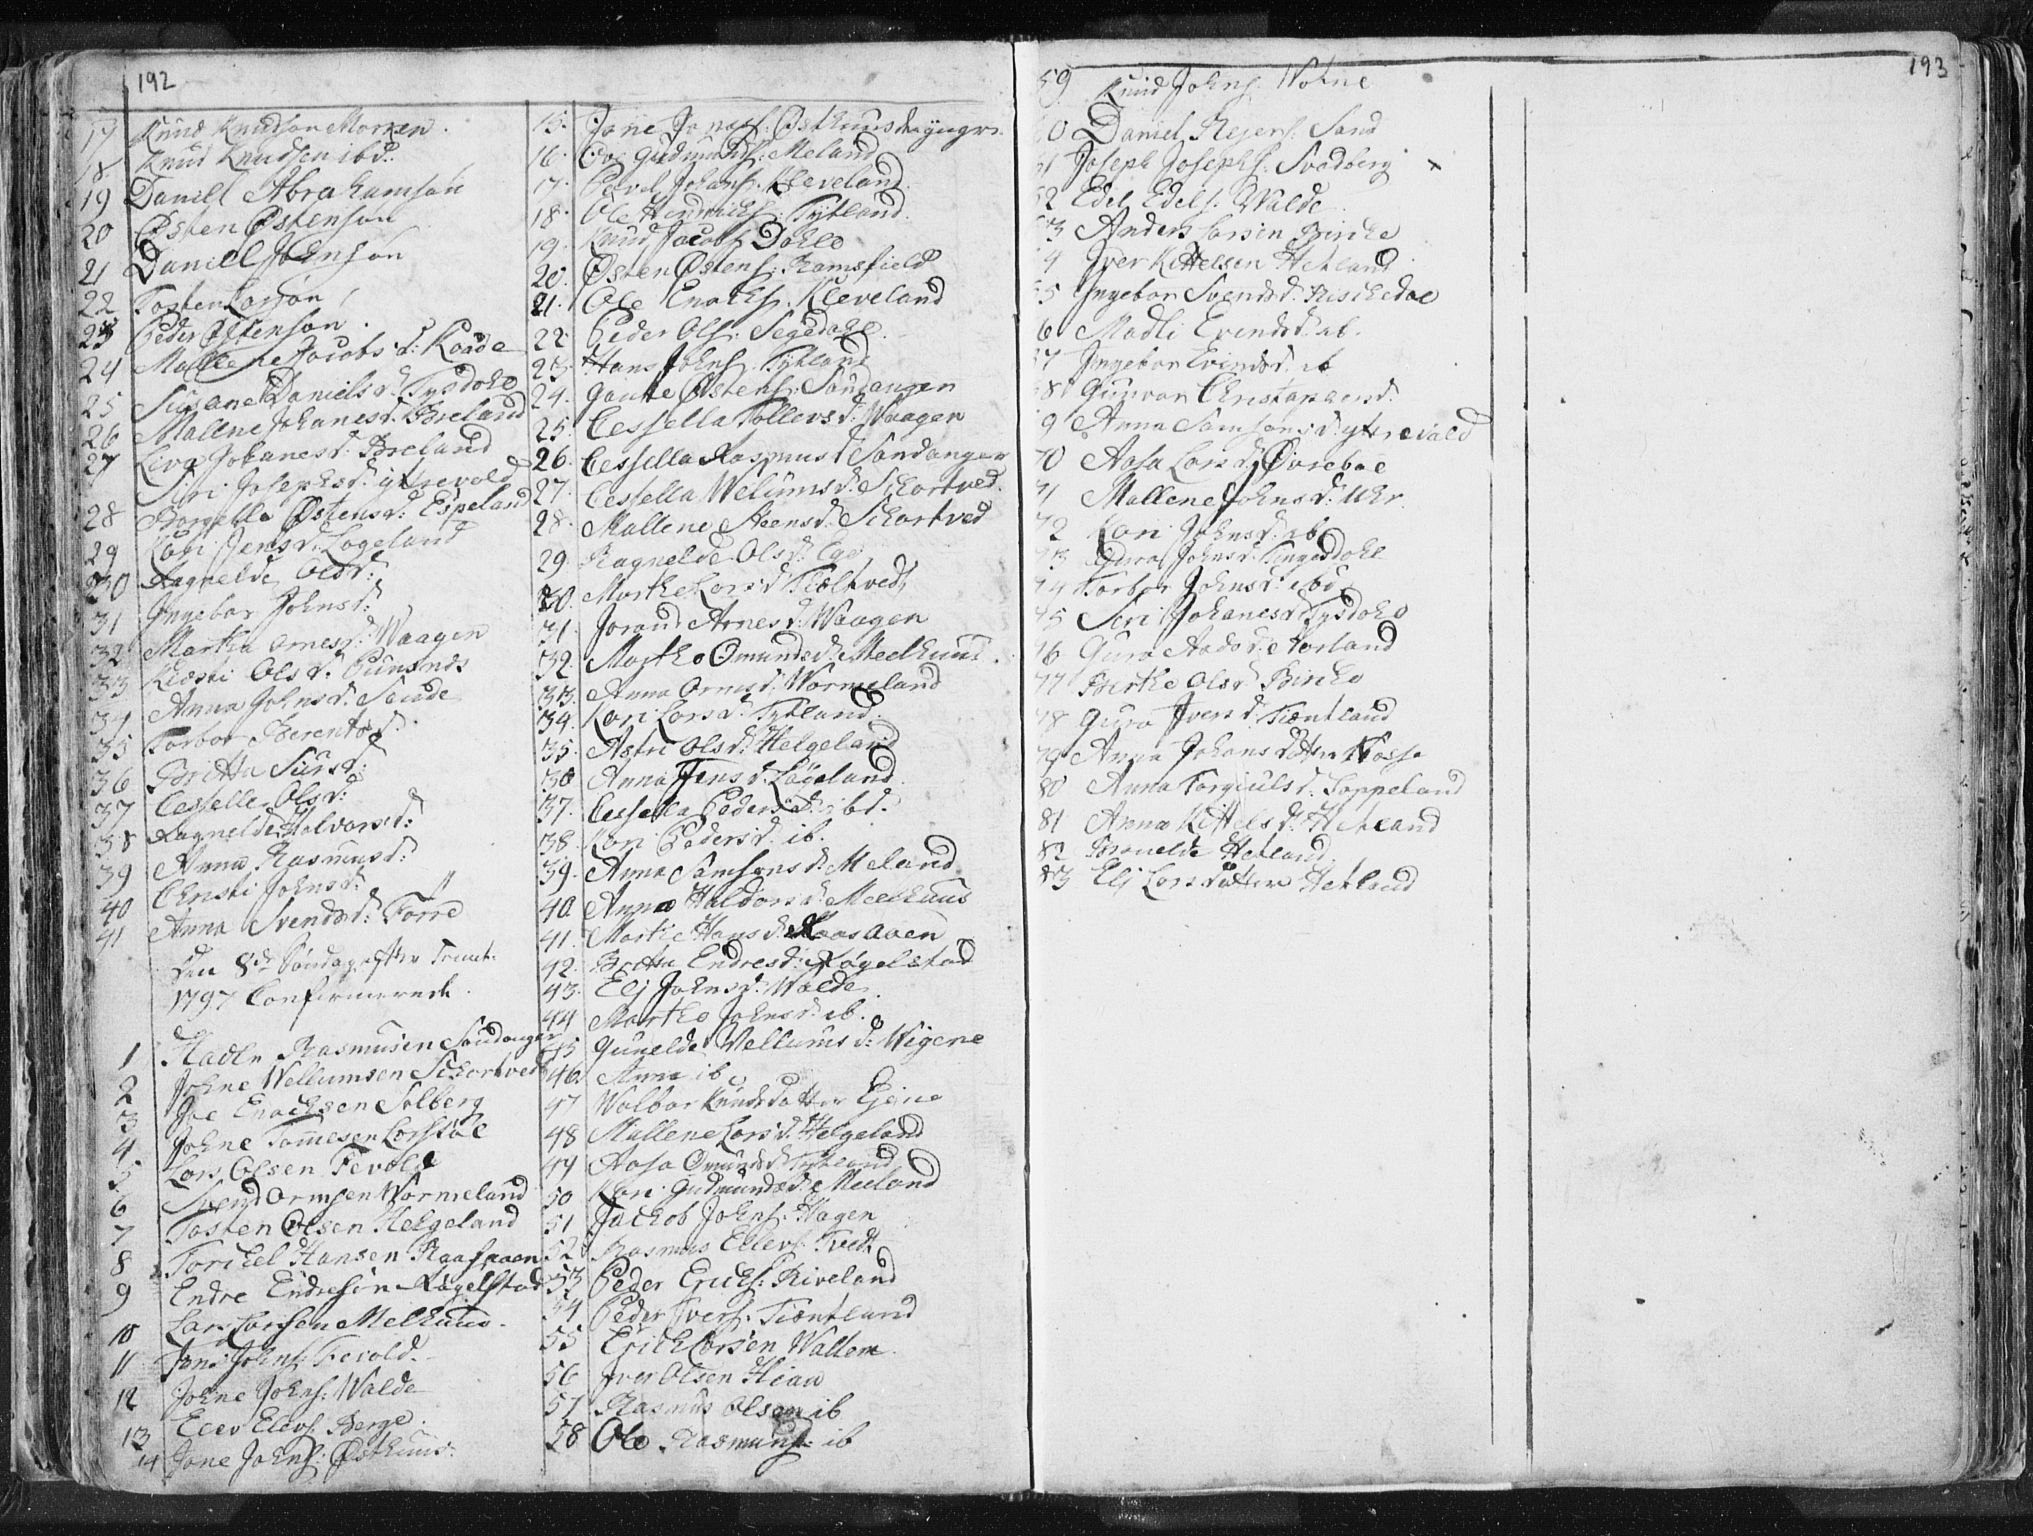 192
17 Knud Knudson Morken.
18 Knud Knudsen ibd:
19 Daniel Abrahamson
20 Østen Østenson
21 Daniel Johnson
22 Tosten Larson
23 Peder Ostenson.
24 Mallene Jacobs d: Kaade
25 Susane Daniels d: Tysdahl
26 Mallene Johanes d: Breland
27 Siva Johanes d: Breland
Siri Josephs d: Yttrevold
28 Borgella Østens d: Espeland
29 Kari Jens d: Løgeland
30 Ragnelde Ols d:
31 Ingebor Johns d:
32 Martha Arnes d: Waagen
33 Kiersti Ols d:
34 Anna Johns d:
35 Torbor Berents d:
36 Britta Siurs d:
37 Cesselle Ols d:
38 Ragnelde Halvors d:
39 Anna Rasmus d:
40 Christi Johns d:
41 Anna Svends d: Torre
Den 8de Søndag efter Trinit:
1797 Confirmerede.
1 Hadln Rasmusen Sandanger
2 Johne Wellumsen Schortved
3 Joe Enochsen Solberg
4 Johne Tommesen
5 Lars Olsen Fevold
6 Svend Ormsen Wormeland
7 Tosten Olsen Helgeland
8 Torchel Hansen Raasaaen
9 Endre Endresen Røgelstad
10 Lars Larsen Melhuus.
11 Jens Johns: Fevold.
12 Johne Johns: Walde
13 Elev Elevs: Berge.
14 Jone Johns: Østhuus.
15. Jone Jonas: Østhuus den yngre.
16. Ove Gudmunds: Meland
17. Povel Johans: Kleveland
18. Ole Henrichs: Tytland.
19. Knud Jacobs Dahle
20. Østen Østens: Ramsfield
21. Ole Enochs: Kleveland
22. Peder Ols: Segedahl
23. Hans Johns: Tytland
24. Gaute Østens: Sandanger
25. Cessella Tollevs d: Waagen
26. Cessella Rasmus d Sandanger
27. Cessella Welums d: Schortved.
28. Mallene Steens d: Schortved
29. Ragnelde Ols d: Ege
30. Marthe Lars d Tieltved
31. Jorand Arnes d: Waagen
32. Martha Omunds d: Meelhuus.
33. Anna Orms d: Wormeland
34. Kari Lars d: Tytland.
35. Astri Ols d: Helgeland
36 Anna Jens d: Løgeland
37. Cessella Peders d: ibd.
38. Kari Peders d. ib.
39. Anna Samsons d: Meland
40. Anna Haldors d: Meelhuus
41. Marthe Hans d: Raasaaen
42. Britta Endres d: Røgelstad
43. Eli Johns d: Walde.
44 Martha Johns d: ib.
45 Gunelde Wellums d: Wigene
46. Anna ib.
47 Walbor Knudsdatter Eiene
48 Mallene Lars d: Helgeland
49 Aasa Omunds d: Tytland
50 Kari Gudmunds d: Meeland
51 Jachob Johns: Hagen
52 Rasmus Ellevs: Tvedt
53 Peder Erichs: Riveland
54 Peder Ivers: Tiæntland
55 Erich Larsen Wallem
56 Iver Olsen Hiaa
57 Rasmus Olsen ib
58 Ole Rasmuns: ib
193
59 Knud Johns: Votne
0 Daniel Rejers: Sand
61 Joseph Josephs: Svadberg x
62 Edel Edels: Walde
63 Anders Larsen Birche
4 Iver Kittelsen Hetland
65 Ingebor Svends d: Rischedal
6 Madli Evends d: ib.
67 Ingebor Evinds d. ib
68 Gunvor Christophers d:
9 Anna Samsons d: Yttrevold
70 Aasa Lars d: Øvrebøe
71 Mallene Johns d:
72 Kari Johns d: ib
73 Gura Johns d: Tingesdahl
74 Torbor Johns d: ibd
75 Seri Johanes d Tysdahl
76 Gura Aads d: Aarland
77 Berthe Ols d Birche
78 Gura Ivers d: Tiæntland
79 Anna Johans datter Fosse
80 Anna Torgiuls d: Toppeland
81 Anna Kittels d: Hetland
82 Brønelde Hetland.
83 Eli Lars datter Hetland